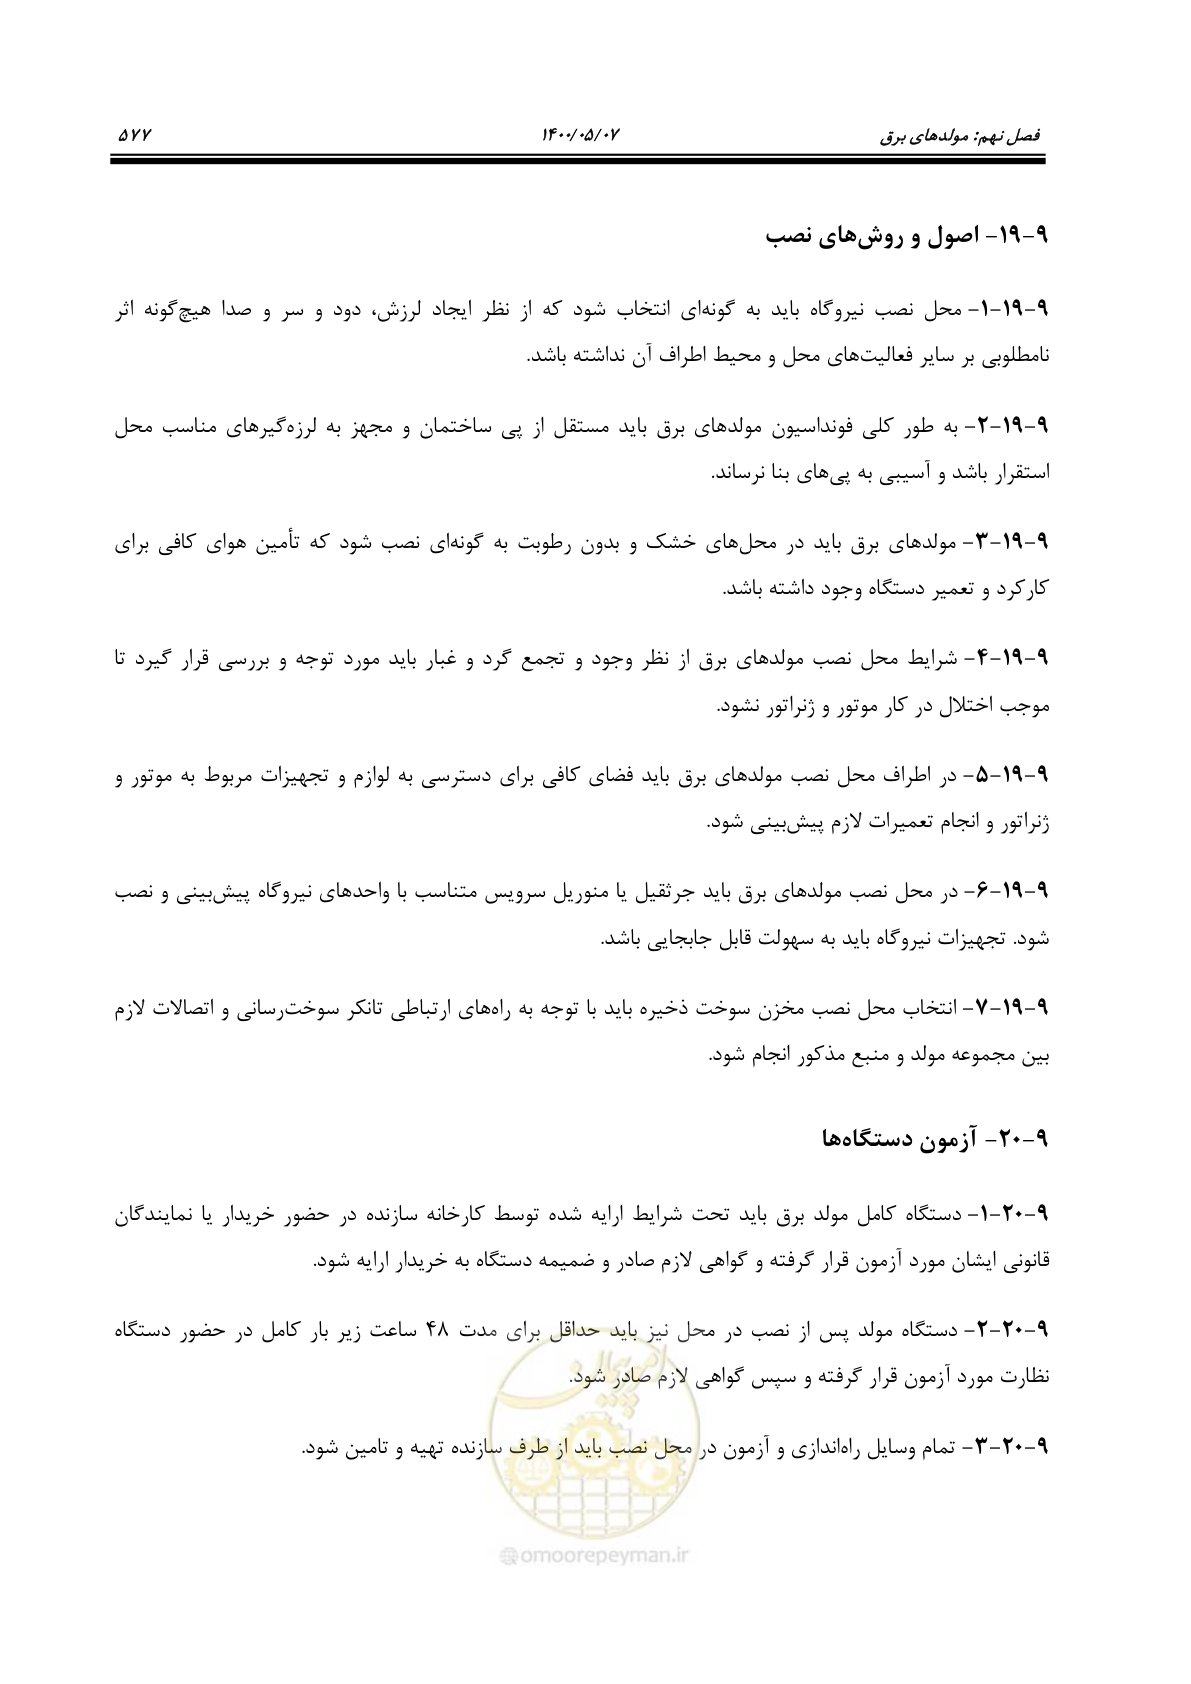 فصل نهم: مولدهای برق ۱۴۰۰/۰۵/۰۷ ۵۷۷
۹-۱۹- اصول و روش‌های نصب
۹-۱۹-۱- محل نصب نیروگاه باید به گونه‌ای انتخاب شود که از نظر ایجاد لرزش، دود و سر و صدا هیچ‌گونه اثر
نامطلوبی بر سایر فعالیت‌های محل و محیط اطراف آن نداشته باشد.
۹-۱۹-۲- به طور کلی فونداسیون مولدهای برق باید مستقل از پی ساختمان و مجهز به لرزه‌گیرهای مناسب محل
استقرار باشد و آسیبی به پی‌های بنا نرساند.
۹-۱۹-۳- مولدهای برق باید در محل‌های خشک و بدون رطوبت به گونه‌ای نصب شود که تأمین هوای کافی برای
کارکرد و تعمیر دستگاه وجود داشته باشد.
۹-۱۹-۴- شرایط محل نصب مولدهای برق از نظر وجود و تجمع گرد و غبار باید مورد توجه و بررسی قرار گیرد تا
موجب اختلال در کار موتور و ژنراتور نشود.
۹-۱۹-۵- در اطراف محل نصب مولدهای برق باید فضای کافی برای دسترسی به لوازم و تجهیزات مربوط به موتور و
ژنراتور و انجام تعمیرات لازم پیش‌بینی شود.
۹-۱۹-۶- در محل نصب مولدهای برق باید جرثقیل یا منوریل سرویس متناسب با واحدهای نیروگاه پیش‌بینی و نصب
شود. تجهیزات نیروگاه باید به سهولت قابل جابجایی باشد.
۹-۱۹-۷- انتخاب محل نصب مخزن سوخت ذخیره باید با توجه به راه‌های ارتباطی تانکر سوخت‌رسانی و اتصالات لازم
بین مجموعه مولد و منبع مذکور انجام شود.
۹-۲۰- آزمون دستگاه‌ها
۹-۲۰-۱- دستگاه کامل مولد برق باید تحت شرایط ارایه شده توسط کارخانه سازنده در حضور خریدار یا نمایندگان
قانونی ایشان مورد آزمون قرار گرفته و گواهی لازم صادر و ضمیمه دستگاه به خریدار ارایه شود.
۹-۲۰-۲- دستگاه مولد پس از نصب در محل نیز باید حداقل برای مدت ۴۸ ساعت زیر بار کامل در حضور دستگاه
نظارت مورد آزمون قرار گرفته و سپس گواهی لازم صادر شود.
۹-۲۰-۳- تمام وسایل راه‌اندازی و آزمون در محل نصب باید از طرف سازنده تهیه و تامین شود.
امور پیمان
@omoorepeyman.ir